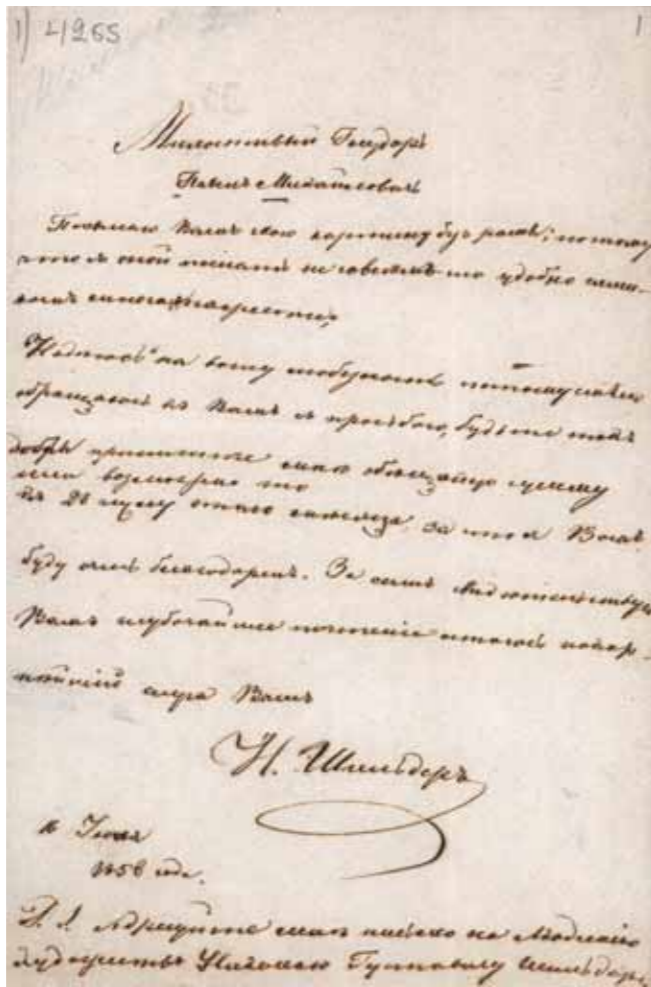 1) 4265
1
Милостивый Государь
Павелъ Михайловичъ
Посылаю Вамъ мою картину безъ рамы; потому
что въ оной писать не совсѣмъ-то удобно
Надѣюсь на вашу любезность потому
обращаюсь къ Вамъ съ просьбою, будьте такъ
добры пришлите мнѣ обѣщанную сумму
если возможно то
къ 20 числу этаго мѣсяца, за что я Вамъ
буду очень благодаренъ. За симъ свидѣтельствую
Вамъ глубочайшее почтеніе остаюсь покор-
нѣйшій слуга Вашъ
Н. Шильдеръ
Іюня
1856 года.
P. S. Адресуйте мнѣ письмо на Академію
Художествъ Николаю Густавовичу Шильдеръ